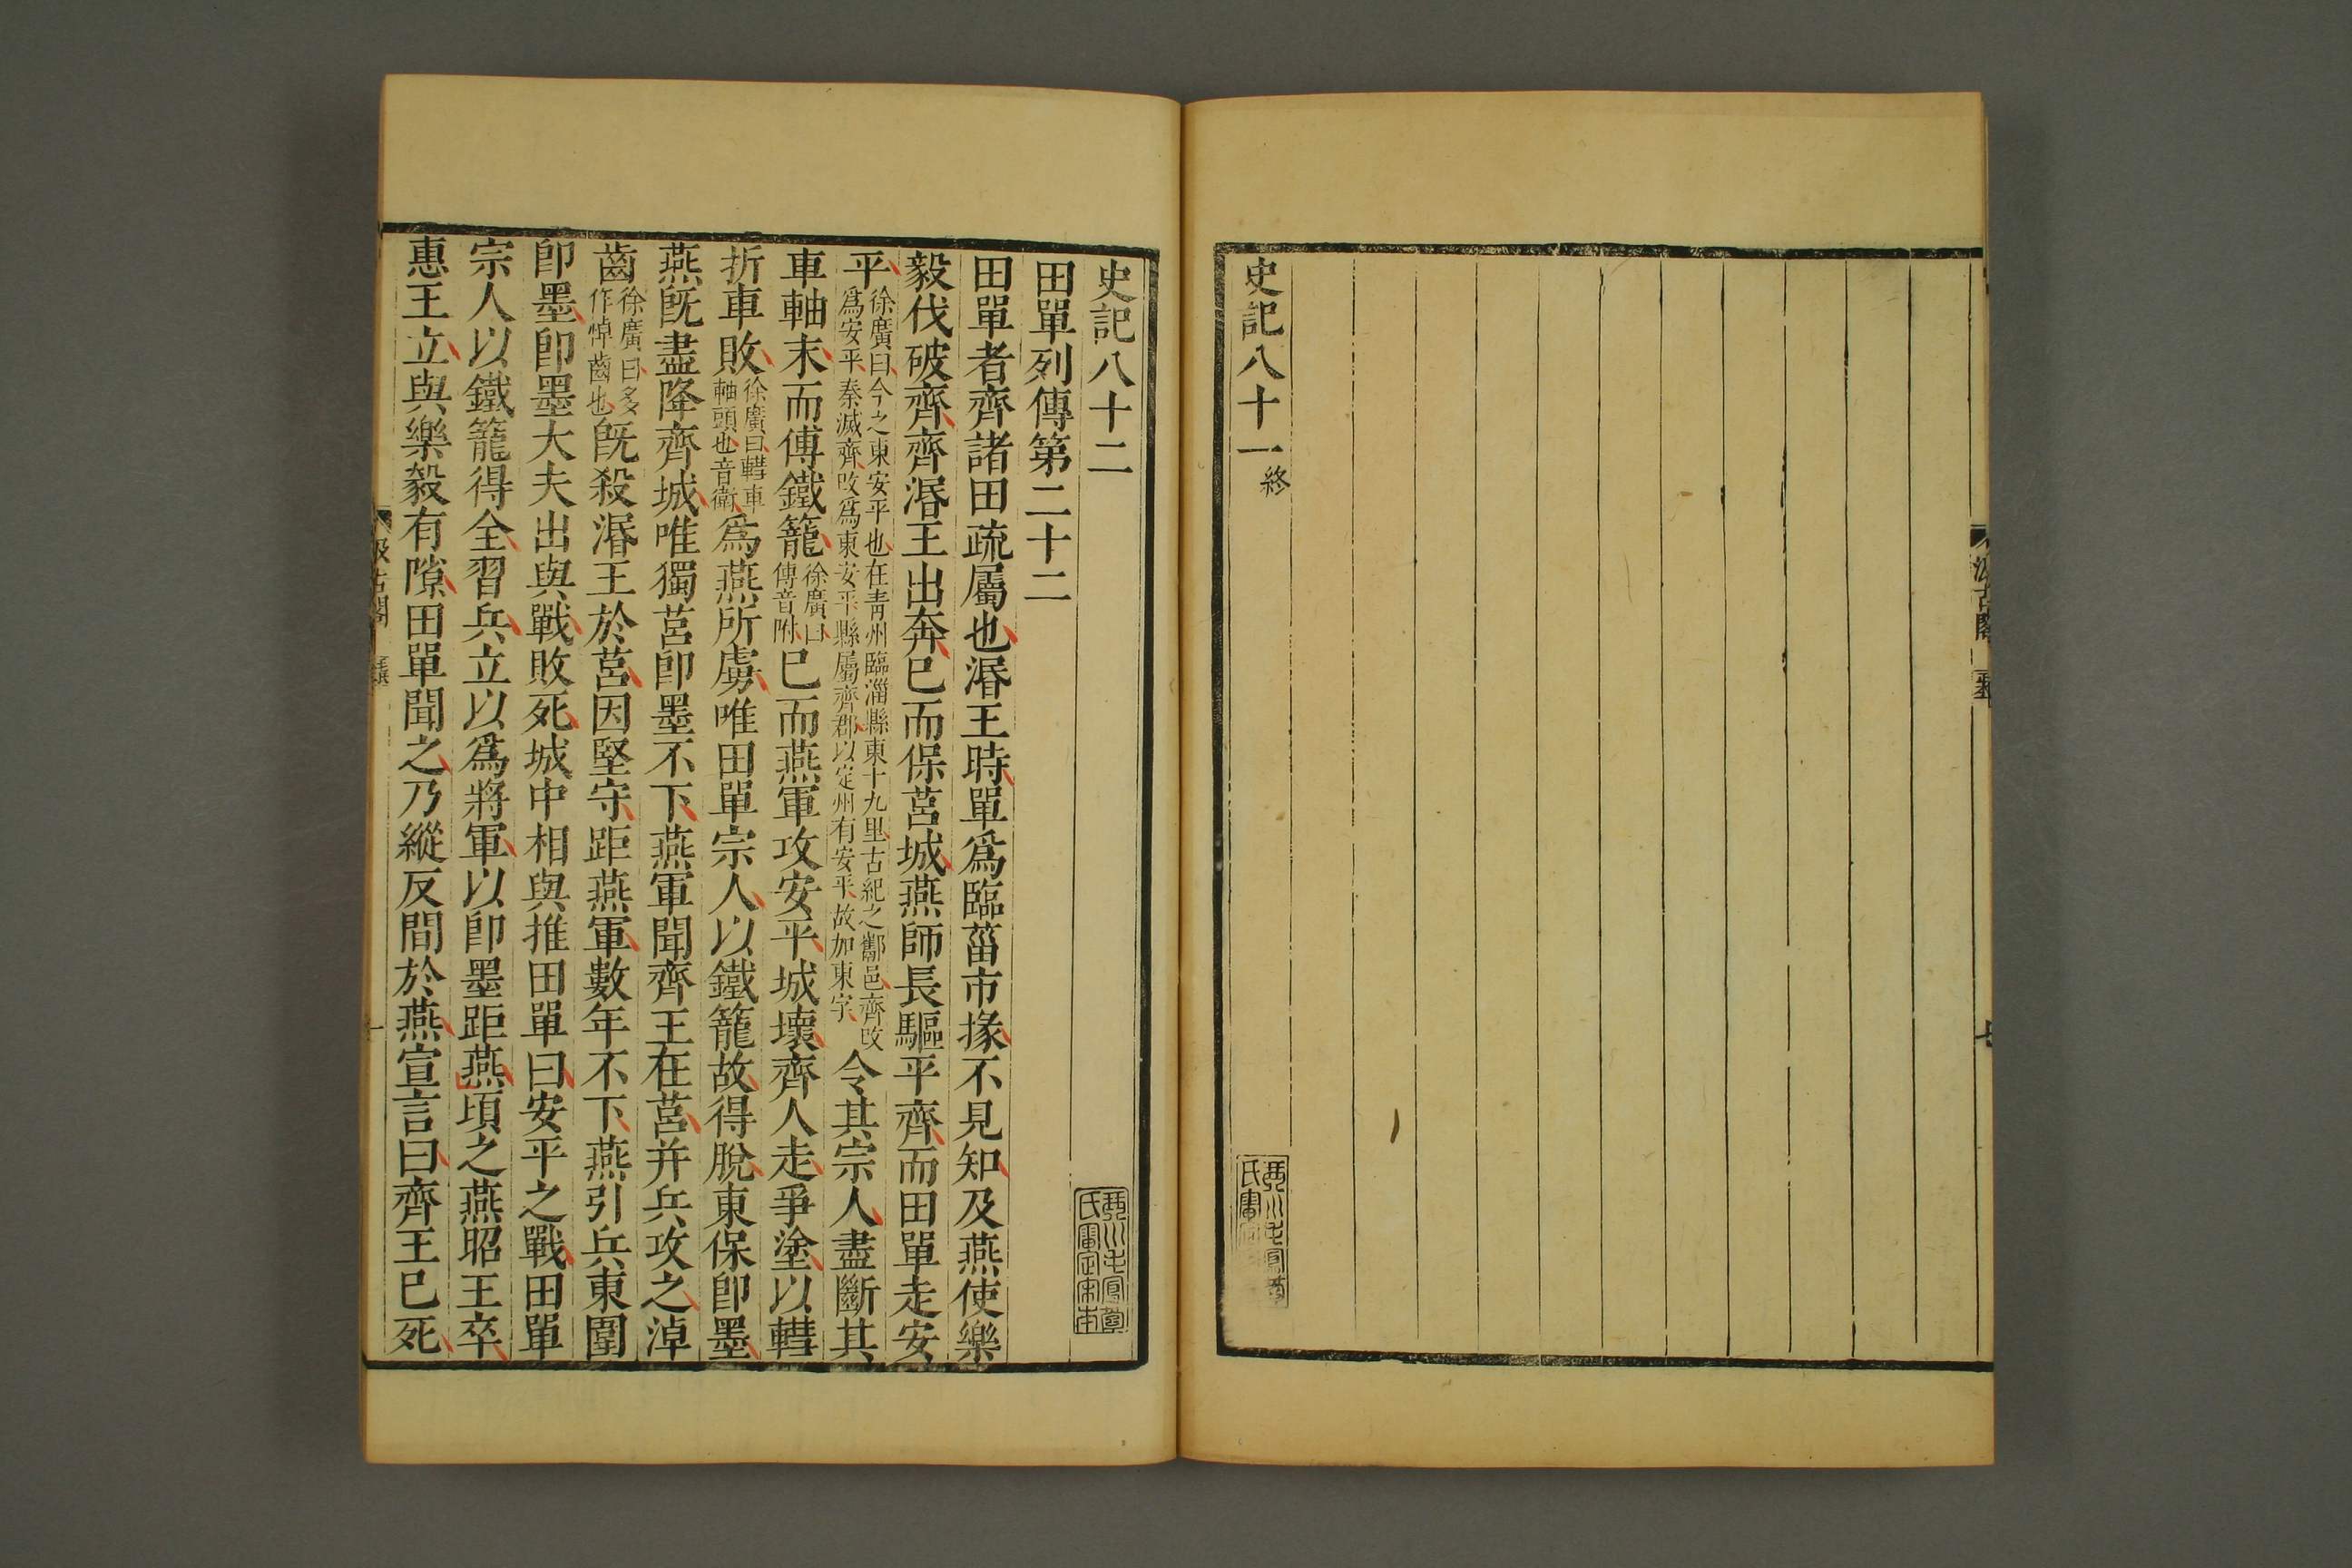 史記八十一 終
史記八十二
田單列傳第二十二
田單者齊諸田疏屬也湣王時單爲臨菑市掾不見知及燕使樂
毅伐破齊齊湣王出奔已而保莒城燕師長驅平齊而田單走安
平徐廣曰今之東安平也在青州臨淄縣東十九里古紀之酅邑齊改爲安平秦滅齊改爲東安平縣屬齊郡以定州有安平故加東字令其宗人盡斷其
車軸末而傅鐵籠徐廣曰傅音附已而燕軍攻安平城壞齊人走爭塗以轊
折車敗徐廣曰轊車軸頭也音衛爲燕所虜唯田單宗人以鐵籠故得脫東保卽墨
燕旣盡降齊城唯獨莒卽墨不下燕軍聞齊王在莒并兵攻之淖
齒徐廣曰多作悼齒也旣殺湣王於莒因堅守距燕軍數年不下燕引兵東圍
卽墨卽墨大夫出與戰敗死城中相與推田單曰安平之戰田單
宗人以鐵籠得全習兵立以爲將軍以卽墨距燕頃之燕昭王卒
惠王立與樂毅有隙田單聞之乃縱反間於燕宣言曰齊王已死